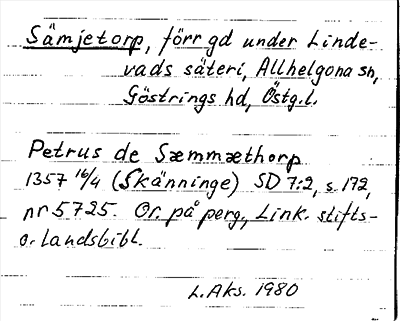 Sämjetorp, förr gd under Linde-
vads säteri, Allhelgona sn,
Göstrings hd, Östg.l.
Petrus de Sæmmæthorp
1357 16/4 (Skänninge) SD 7:2, s. 172,
nr 5725. Or. på perg., Link. stifts-
o. landsbibl.
L. Aks. 1980